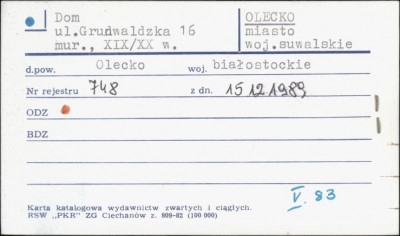 Dom
ul.Grunwaldzka 16
mur., XIX/XX w.
OLECKO
miasto
woj.suwalskie
d.pow. Olecko woj. białostockie
Nr rejestru 748 z dn. 15.12.1989
ODZ
BDZ
Karta katalogowa wydawnictw zwartych i ciągłych.
RSW „PKR” ZG Ciechanów z. 809-82 (100 000)
V. 83